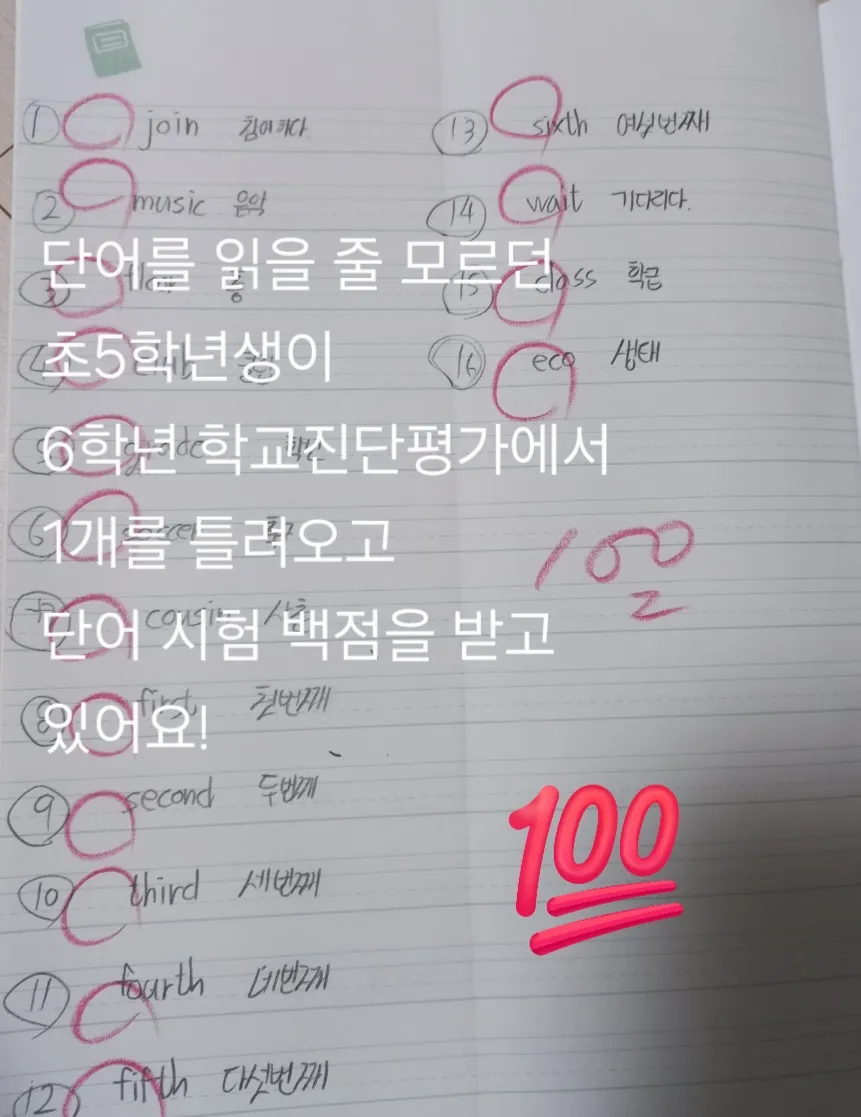 ① join 참여하다
② music 음악
③
④
⑤ grade 학년
⑥ soccer 축구
⑦ cousin 사촌
⑧ first 첫번째
⑨ second 두번째
⑩ third 세번째
⑪ fourth 네번째
⑫ fifth 다섯번째
⑬ sixth 여섯번째
⑭ wait 기다리다.
⑮ class 학급
⑯ eco 생태
100
단어를 읽을 줄 모르던
초5학년생이
6학년 학교진단평가에서
1개를 틀려오고
단어 시험 백점을 받고
있어요!
100